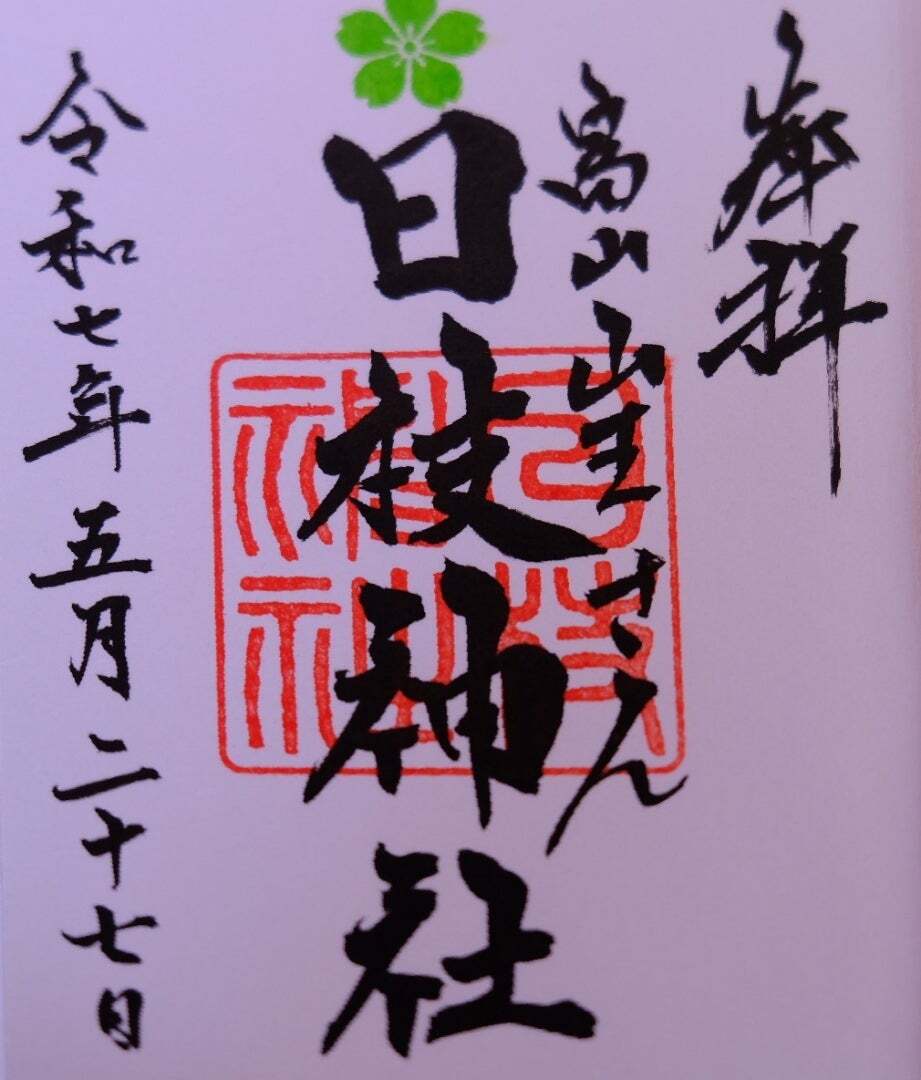 拝
高山 山王さん
日枝神社
日枝神社
令和七年五月二十七日